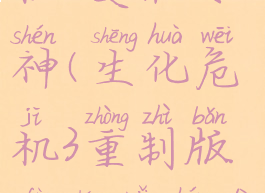 shén shēng huà wēi
神(生化危
jī zhòng zhì bǎn
机3重制版